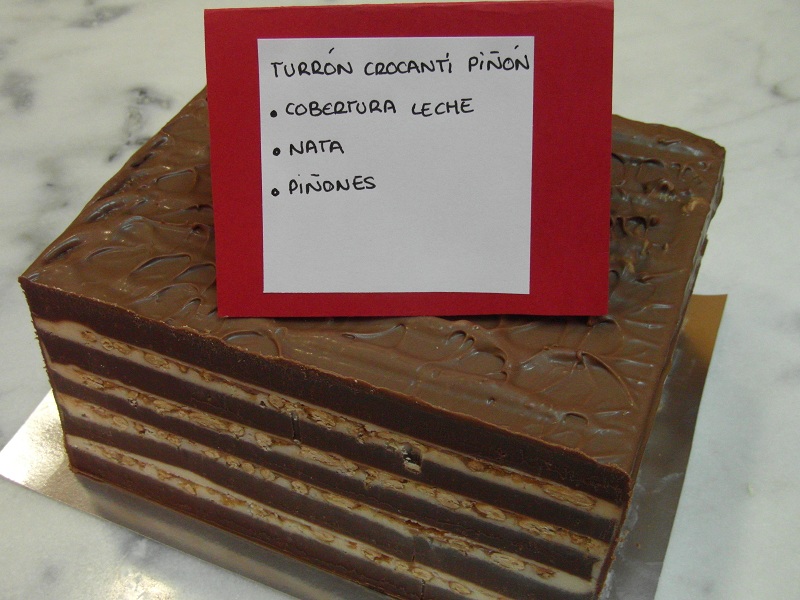 TURRÓN CROCANTÍ PIÑÓN
• COBERTURA LECHE
• NATA
• PIÑONES